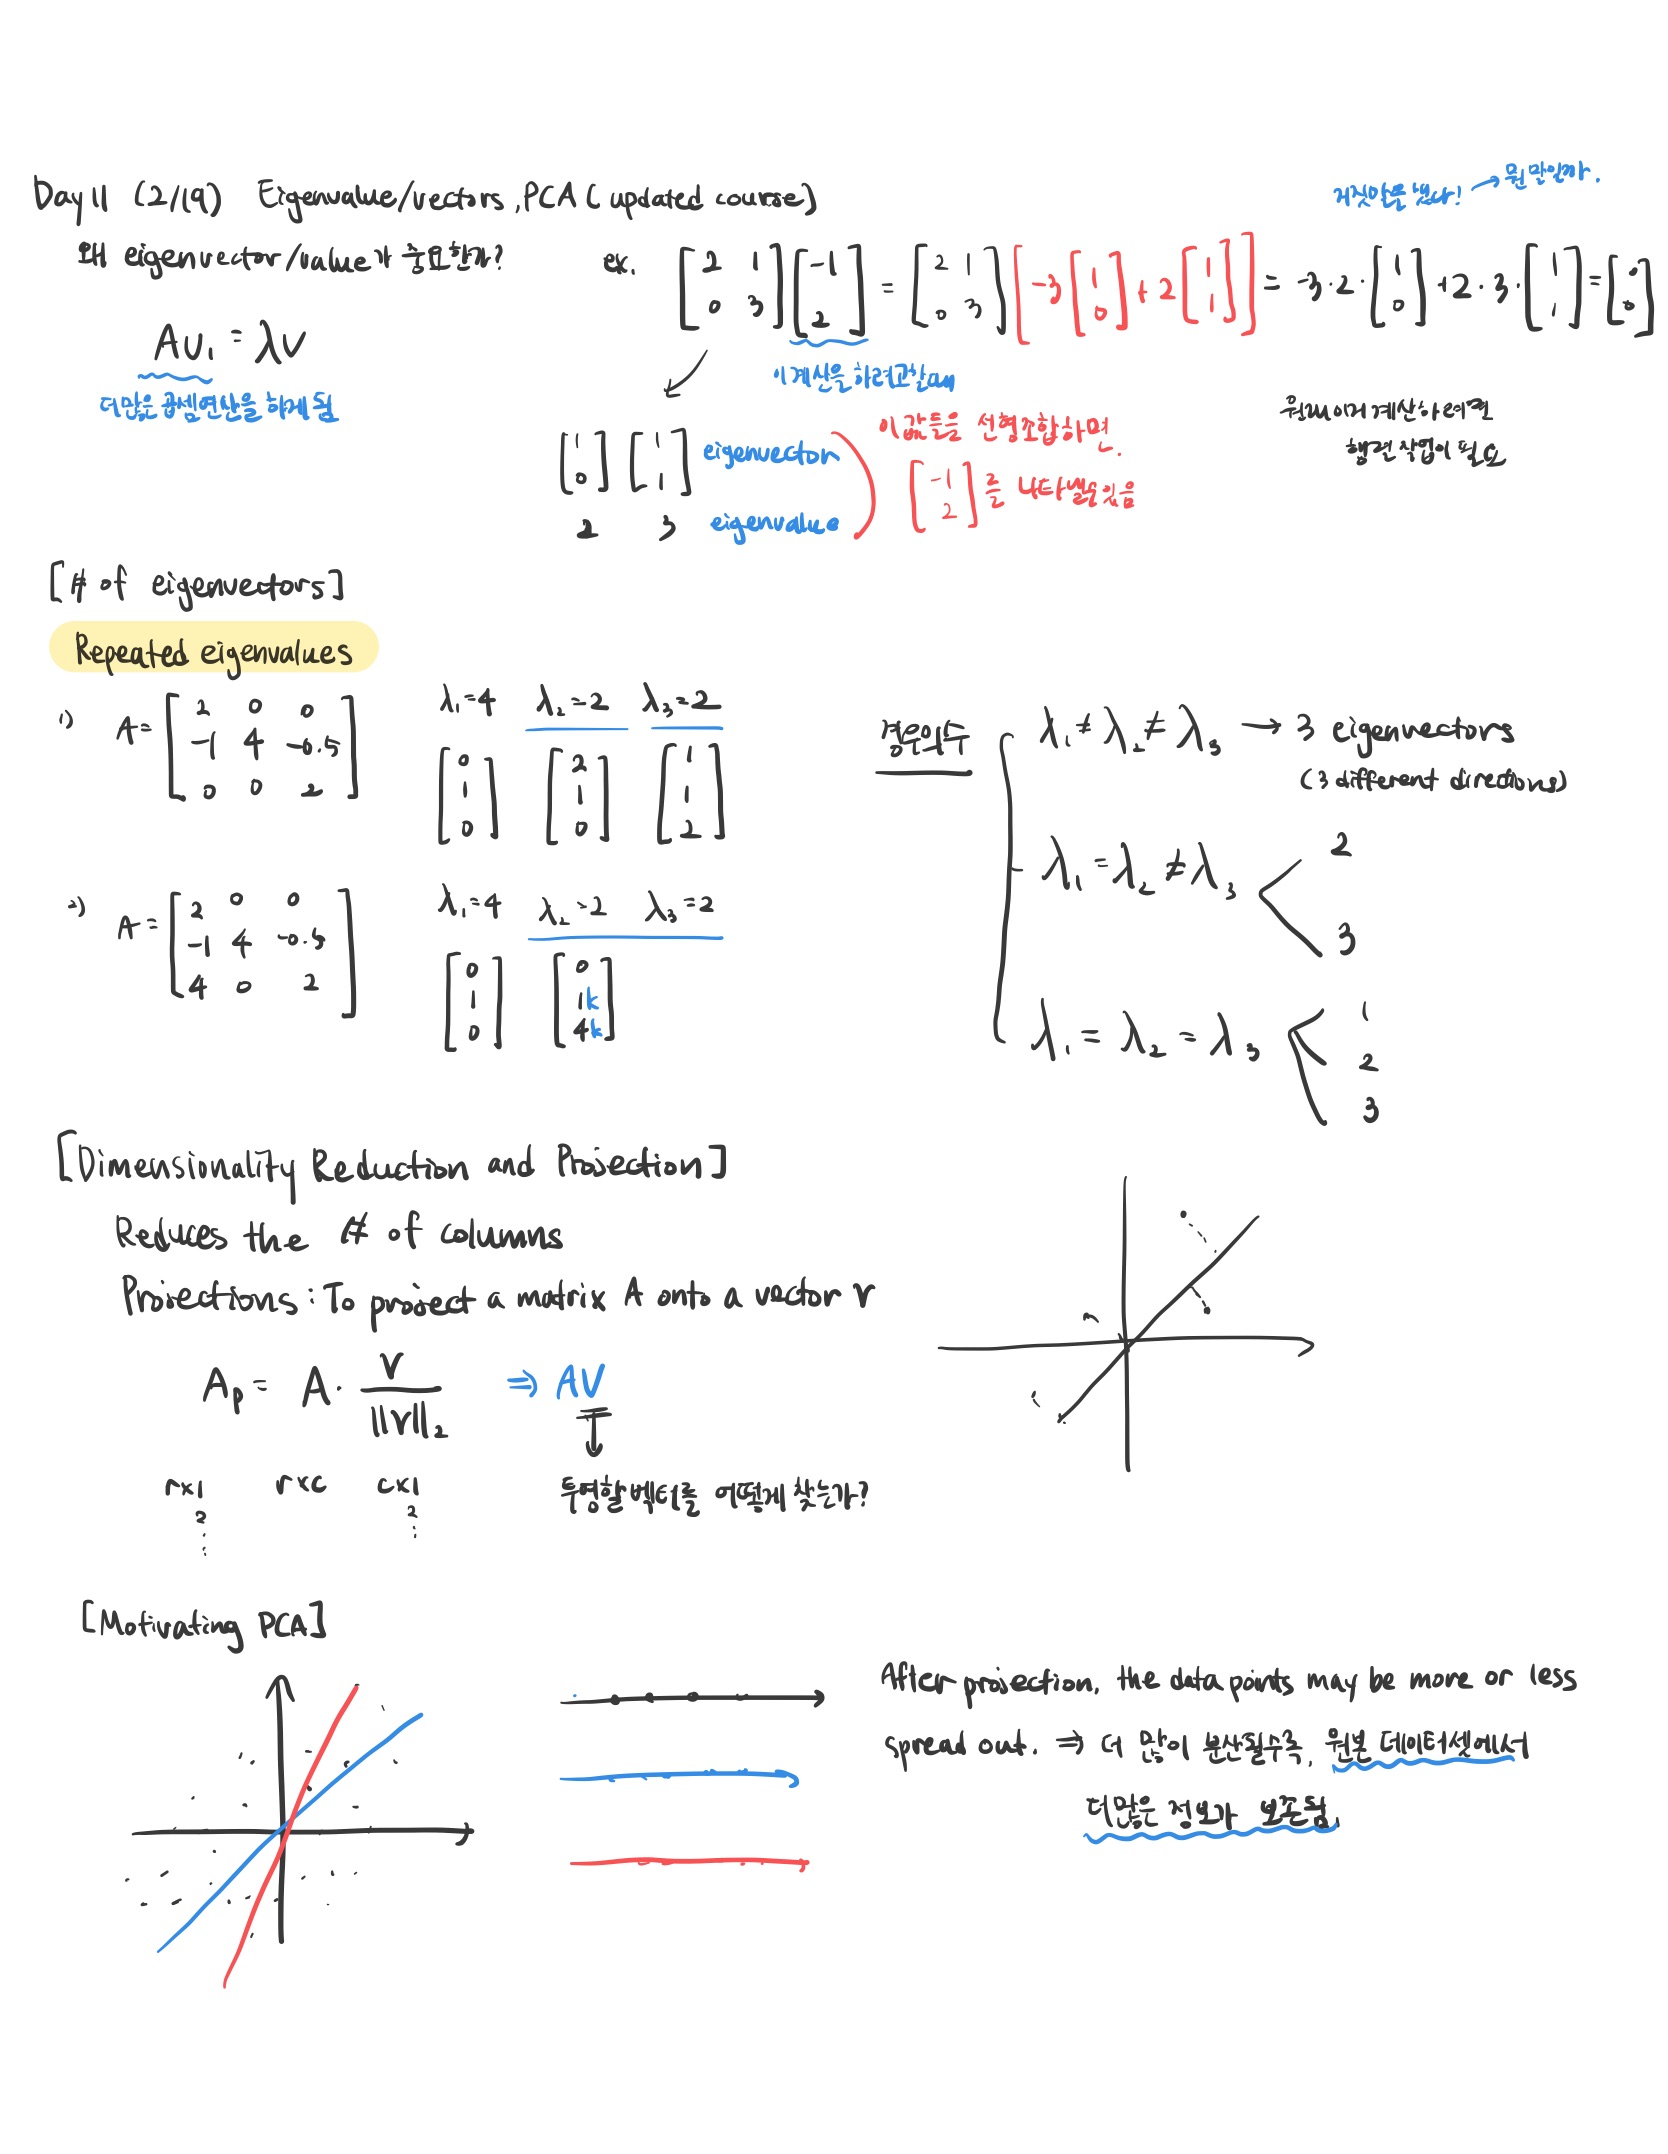 Day 11 (2/19) Eigenvalue/vectors, PCA (updated course)
거짓말은 냈다! → 뭔 말일까.
왜 eigenvector/value가 중요한가?
ex. [2 1; 0 3] [-1; 2] = [2 1; 0 3] [-3 [1; 0] + 2 [1; 1]] = -3·2·[1; 0] + 2·3·[1; 1] = [0; 0]
Av₁ = λv
더많은 곱셈연산을 하게 됨
이 계산을 하려고할때
[1; 0] [1; 1] eigenvector
2 3 eigenvalue
이 값들을 선형조합하면.
[-1; 2] 를 나타낼수있음
원래 이거 계산하려면
행렬 작업이 필요
[# of eigenvectors]
Repeated eigenvalues
1) A = [2 0 0; -1 4 -0.5; 0 0 2]
λ₁=4 λ₂=2 λ₃=2
[0; 1; 0] [2; 1; 0] [1; 1; 2]
2) A = [2 0 0; -1 4 -0.5; 4 0 2]
λ₁=4 λ₂=2 λ₃=2
[0; 1; 0] [0; 1k; 4k]
경우의수
λ₁ ≠ λ₂ ≠ λ₃ → 3 eigenvectors
(3 different directions)
λ₁ = λ₂ ≠ λ₃ < 2
3
λ₁ = λ₂ = λ₃ < 1
2
3
[Dimensionality Reduction and Projection]
Reduces the # of columns
Projections : To project a matrix A onto a vector v
A_p = A · v / ||v||₂ ⇒ AV
r×1 r×c c×1
2 2
⋮ ⋮
투영할 벡터를 어떻게 찾는가?
[Motivating PCA]
After projection, the data points may be more or less
spread out. ⇒ 더 많이 분산될수록, 원본 데이터셋에서
더많은 정보가 보존됨.